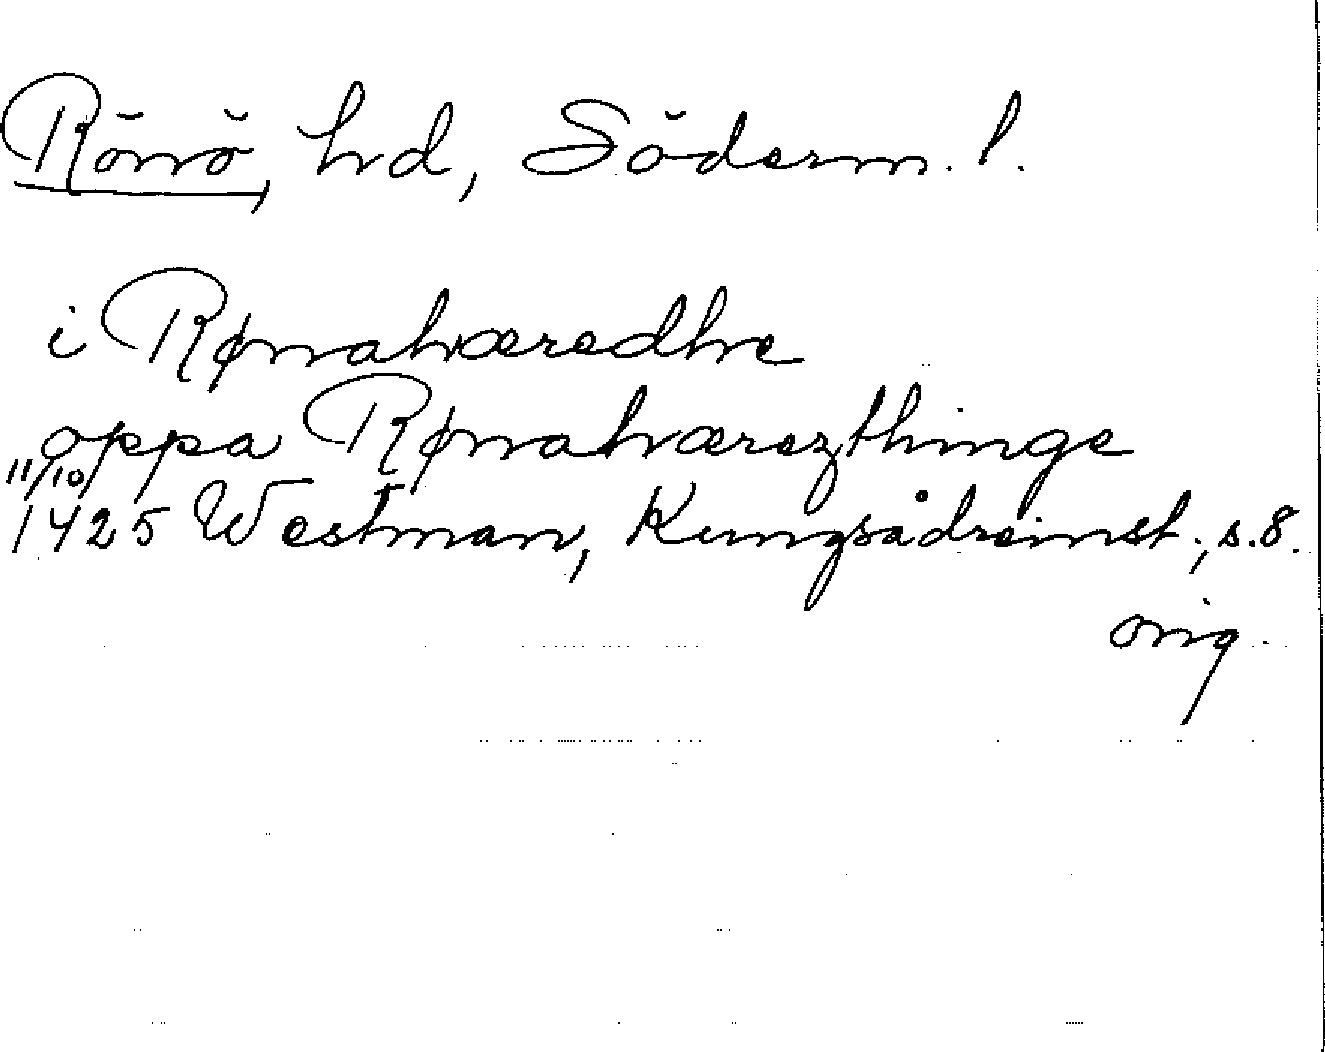 Rönö, hd, Söderm. l.
i Rønahæredhe
oppa Rønahæræzthinge
11/10
1425 Westman, Kungsådreinst., s. 8.
orig.